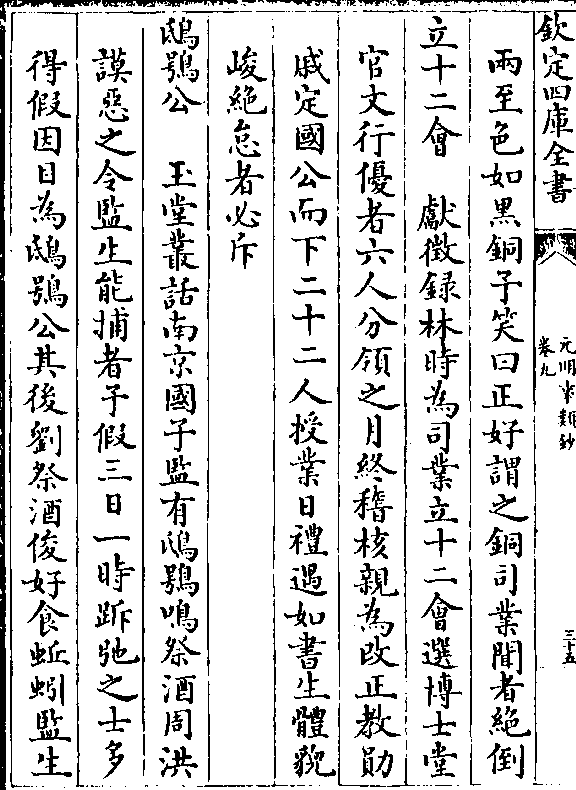 欽定四庫全書
元明事類鈔
卷九
三十五
兩至色如黑銅予笑曰正好謂之銅司業聞者絶倒
立十二會　獻徵録林時為司業立十二會選博士堂
官文行優者六人分領之月終稽核親為改正教勛
戚定國公而下二十二人授業日禮遇如書生體貌
峻絶怠者必斥
鴟鴞公　玉堂叢話南京國子監有鴟鴞鳴祭酒周洪
謨惡之令監生能捕者予假三日一時跅弛之士多
得假因目為鴟鴞公其後劉祭酒俊好食蚯蚓監生